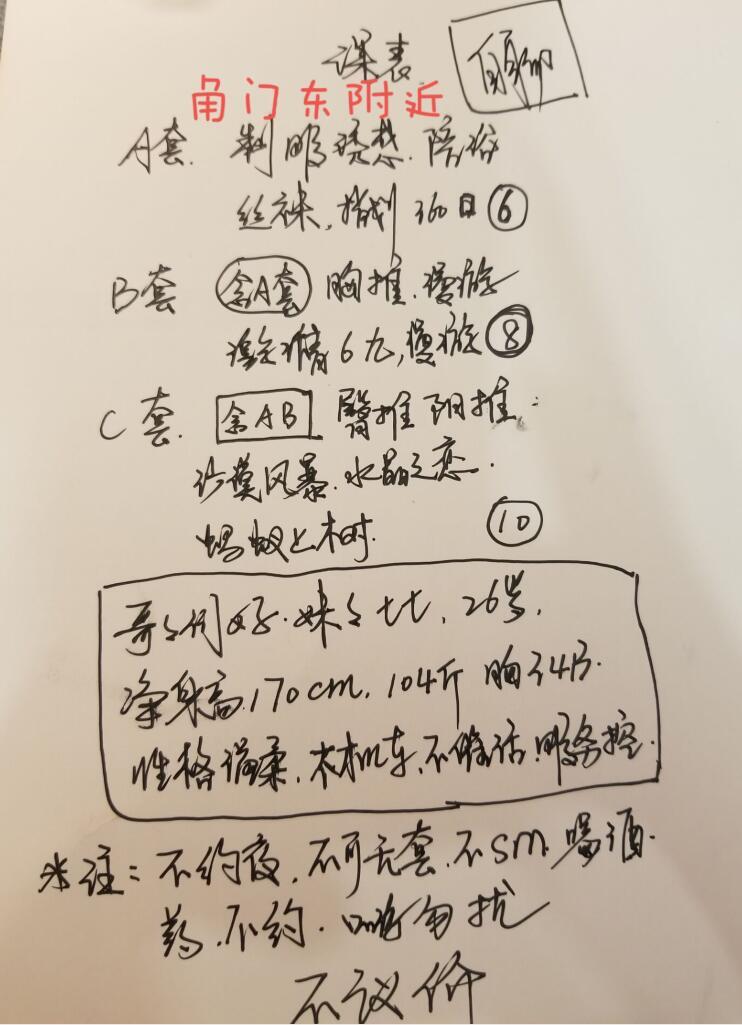 课表
角门东附近
A套. 制服诱惑. 陪浴
丝袜, 指划 360 ⑥
B套 含A套 胸推. 漫游
6九, 漫游 ⑧
C套. 含AB 臀推 阴推.
沙漠风暴. 水晶之恋.
蚂蚁上树. ⑩
哥々们好. 妹々七七, 26岁,
净身高, 170cm, 104斤 胸34B.
性格温柔, 不机车, 不催活. 服务控.
※注: 不约夜, 不可无套, 不SM. 喝酒.
药. 不约. 勿扰
不议价